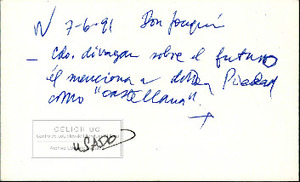 7-6-91 Don Joaquín
– Cdo. divagan sobre el futuro
él menciona a doña Piedad
como "castellana".
CELICH UC
USADO